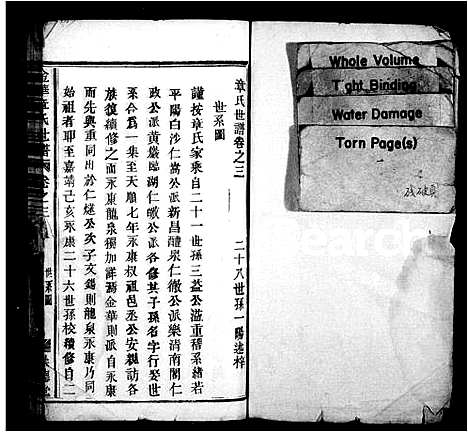 章氏世譜卷之三
二十八世孫一陽述梓
世系圖
謹按章氏家乘自二十一世孫三益公溢重稽系緒若
平陽白沙仁嵩公派新昌醴泉仁徹公派樂清南閣仁
政公派黃巖臨湖仁皦公派各修其子孫名字行娶世
系合為一集至天順七年永康叔祖邑丞公安親訪各
族復續修之而永康龍泉獨加詳焉金華則派自永康
而先與重同出於仁燧公次子文錫則龍泉永康乃同
始祖者耶至嘉靖己亥永康二十六世孫校續修自二
金華章氏世譜 卷之三
世系圖
Whole Volume
Tight Binding
Water Damage
Torn Page(s)